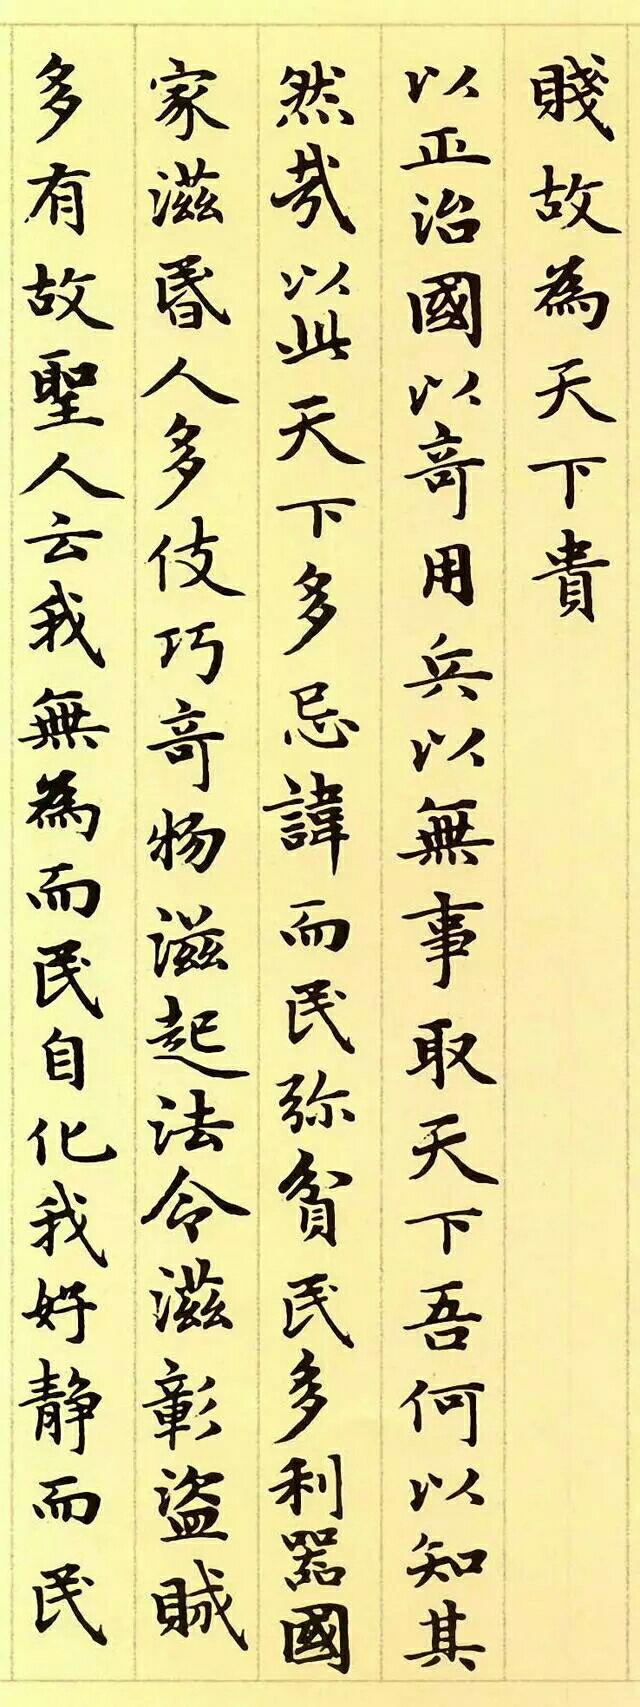 賤故為天下貴
以正治國以奇用兵以無事取天下吾何以知其
然哉以此天下多忌諱而民弥貧民多利器國
家滋昬人多伎巧奇物滋起法令滋彰盜賊
多有故聖人云我無為而民自化我好靜而民